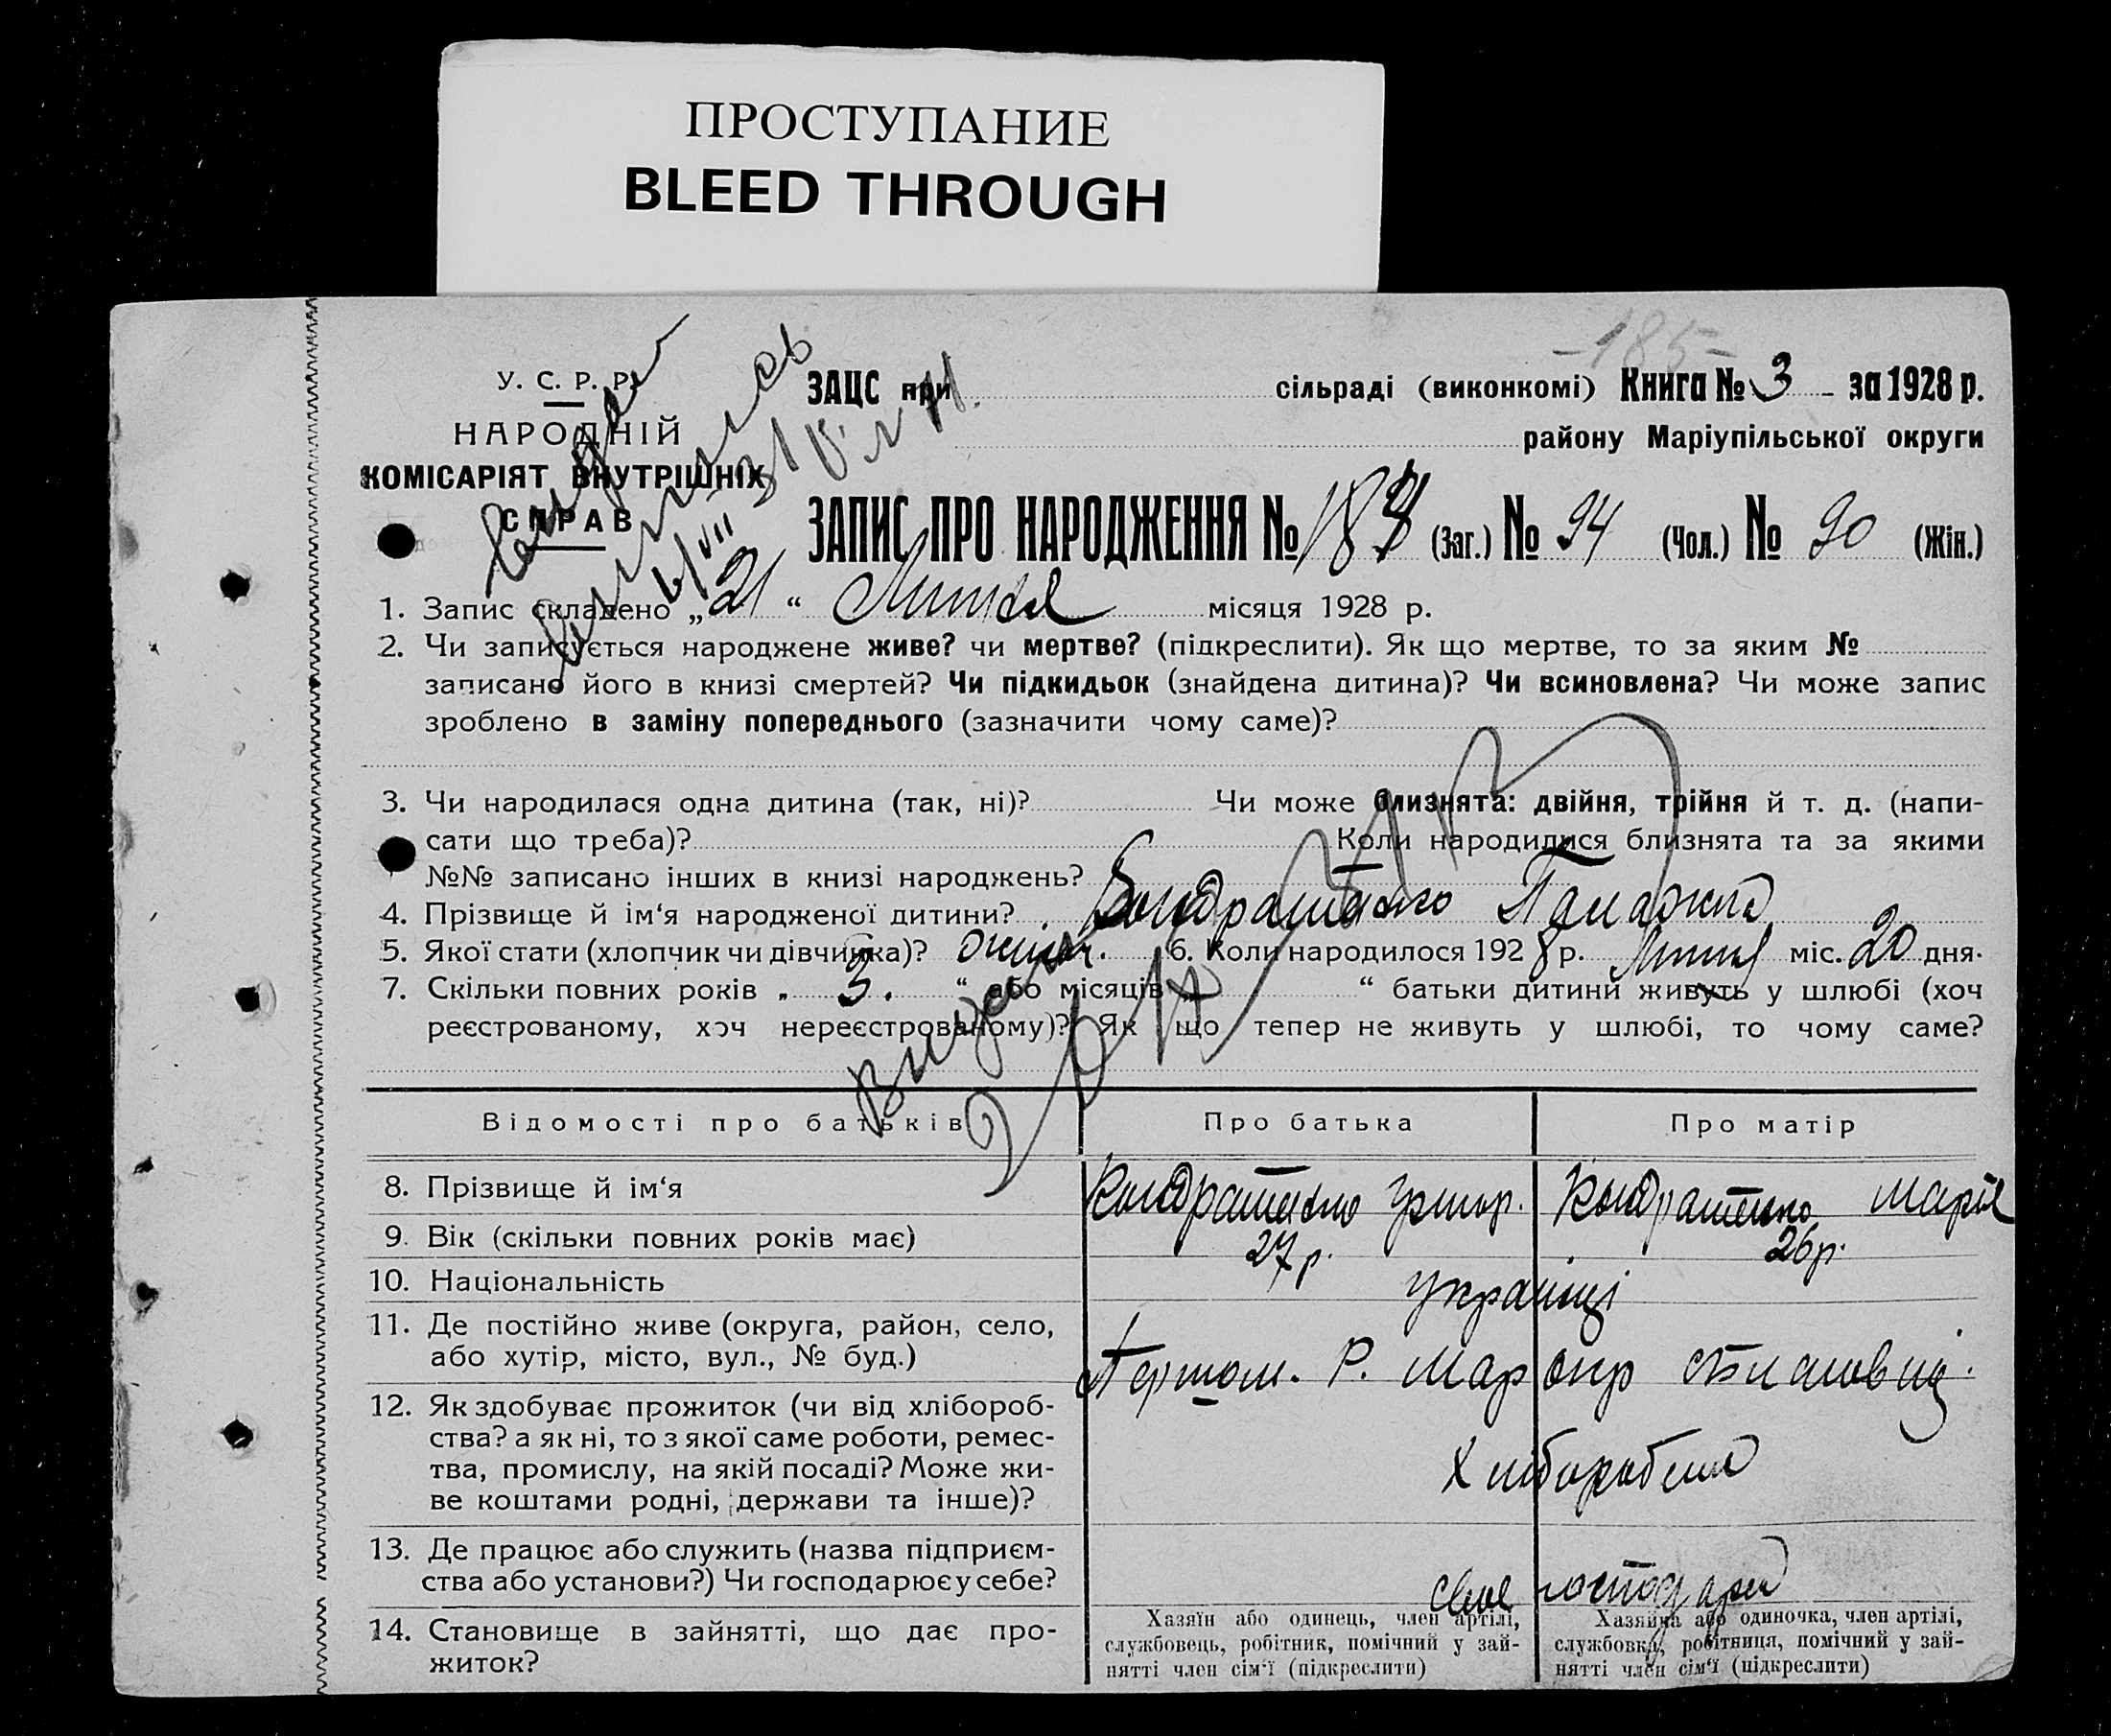 ПРОСТУПАНИЕ
BLEED THROUGH
-185-
У. С. Р. Р.
НАРОДНІЙ
КОМІСАРІЯТ ВНУТРІШНІХ
СПРАВ
ЗАЦС при сільраді (виконкомі) Книга № 3 за 1928 р.
району Маріупільської округи
ЗАПИС ПРО НАРОДЖЕННЯ № (Заг.) № 94 (Чол.) № 90 (Жін.)
1. Запис складено „21“ Липня місяця 1928 р.
2. Чи записується народжене живе? чи мертве? (підкреслити). Як що мертве, то за яким №
записано його в книзі смертей? Чи підкидьок (знайдена дитина)? Чи всиновлена? Чи може запис
зроблено в заміну попереднього (зазначити чому саме)?
3. Чи народилася одна дитина (так, ні)? Чи може близнята: двійня, трійня й т. д. (напи-
сати що треба)? Коли народилися близнята та за якими
№№ записано інших в книзі народжень?
4. Прізвище й ім‘я народженої дитини? Кондратенко Палажка
5. Якої стати (хлопчик чи дівчинка)? жіноч. 6. Коли народилося 1928 р. Липня міс. 20 дня.
7. Скільки повних років „ 3. “ або місяців „ “ батьки дитини живуть у шлюбі (хоч
реєстрованому, хоч нереєстрованому)? Як що тепер не живуть у шлюбі, то чому саме?
Видан
Відомості про батьків Про батька Про матір
8. Прізвище й ім‘я Кондратенко Кондратенко Марія
9. Вік (скільки повних років має) 27 р. 26 р.
10. Національність українці
11. Де постійно живе (округа, район, село,
або хутір, місто, вул., № буд.) Р. Мар окр
12. Як здобуває прожиток (чи від хлібороб-
ства? а як ні, то з якої саме роботи, ремес-
тва, промислу, на якій посаді? Може жи-
ве коштами родні, держави та інше)? Хлібороби
13. Де працює або служить (назва підприєм-
ства або установи?) Чи господарює у себе? своє господар
14. Становище в зайнятті, що дає про-
житок?
Хазяїн або одинець, член артілі,
службовець, робітник, помічний у зай-
нятті член сім‘ї (підкреслити)
Хазяйка або одиночка, член артілі,
службовка, робітниця, помічний у зай-
нятті член сім‘ї (підкреслити)